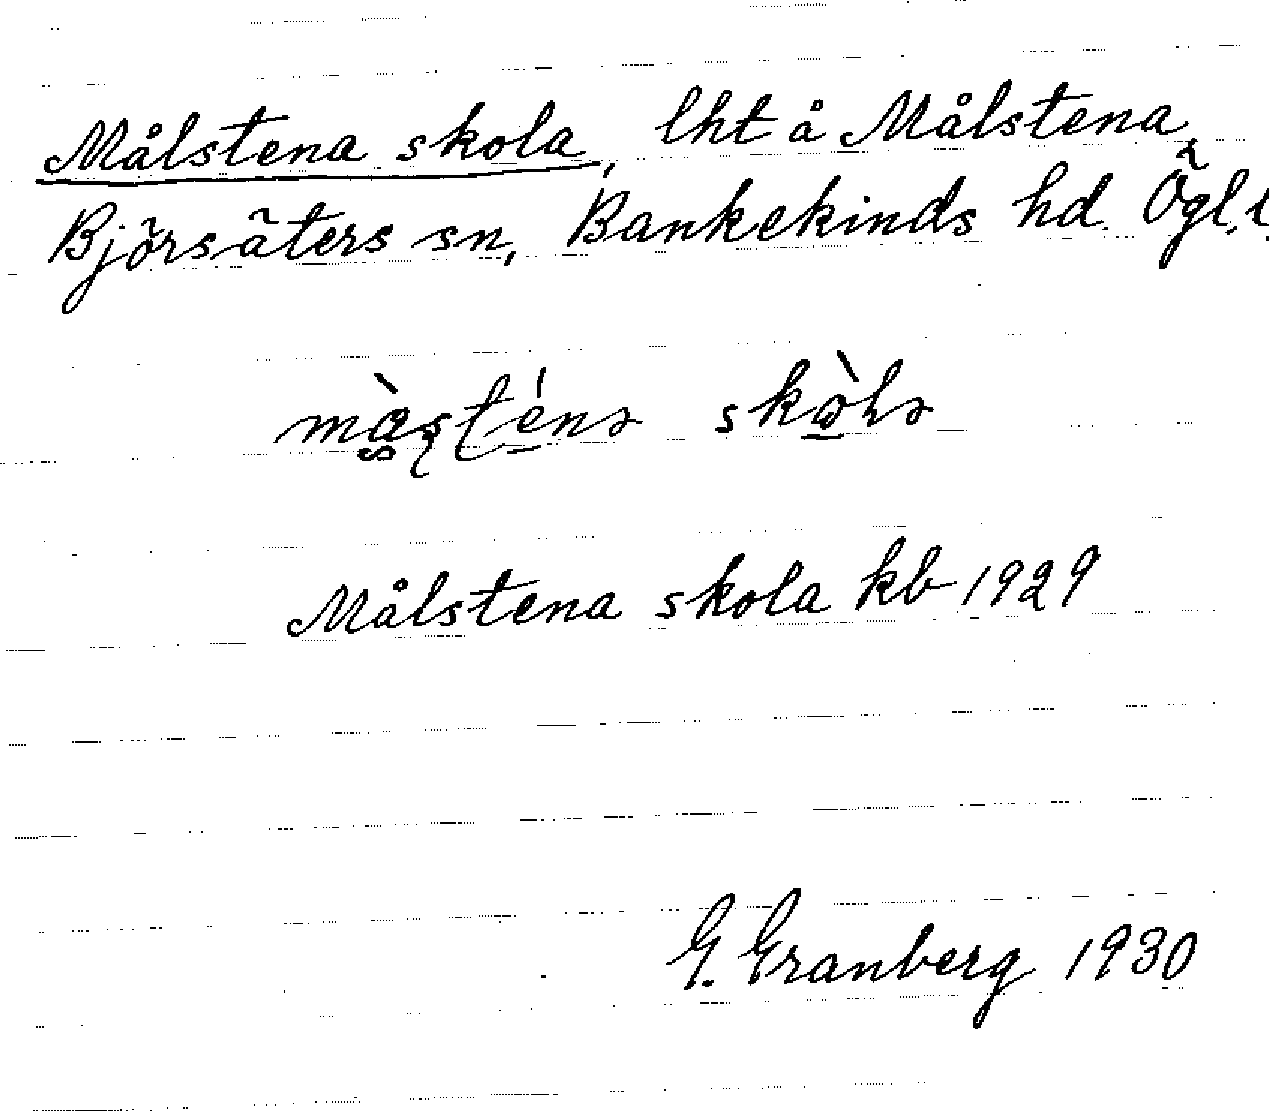 Målstena skola, lht å Målstena,
Björsäters sn, Bankekinds hd Ögl. l.
skola
Målstena skola kb 1929
G. Granberg 1930